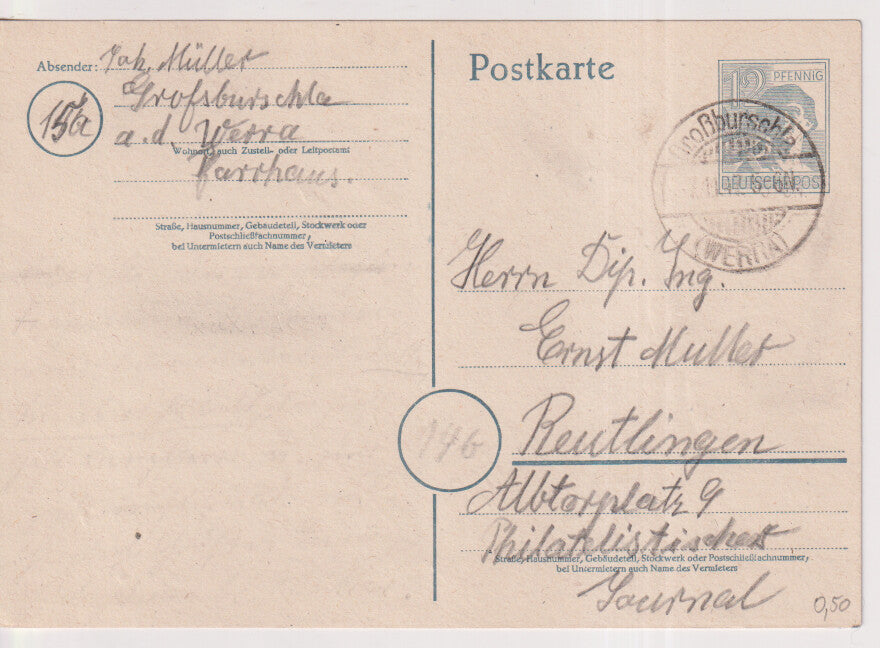 Absender: Joh. Müller
Großburschla
15a
a. d. Werra
Wohnort, auch Zustell- oder Leitpostamt
Pfarrhaus.
Straße, Hausnummer, Gebäudeteil, Stockwerk oder
Postschließfachnummer,
bei Untermietern auch Name des Vermieters
Postkarte
12 PFENNIG
DEUTSCHE POST
Großburschla
(WERRA)
Herrn Dip. Ing.
Ernst Müller
14b
Reutlingen
Albtorplatz 9
Philatelistisches
Straße, Hausnummer, Gebäudeteil, Stockwerk oder Postschließfachnummer,
bei Untermietern auch Name des Vermieters
Journal
0,50